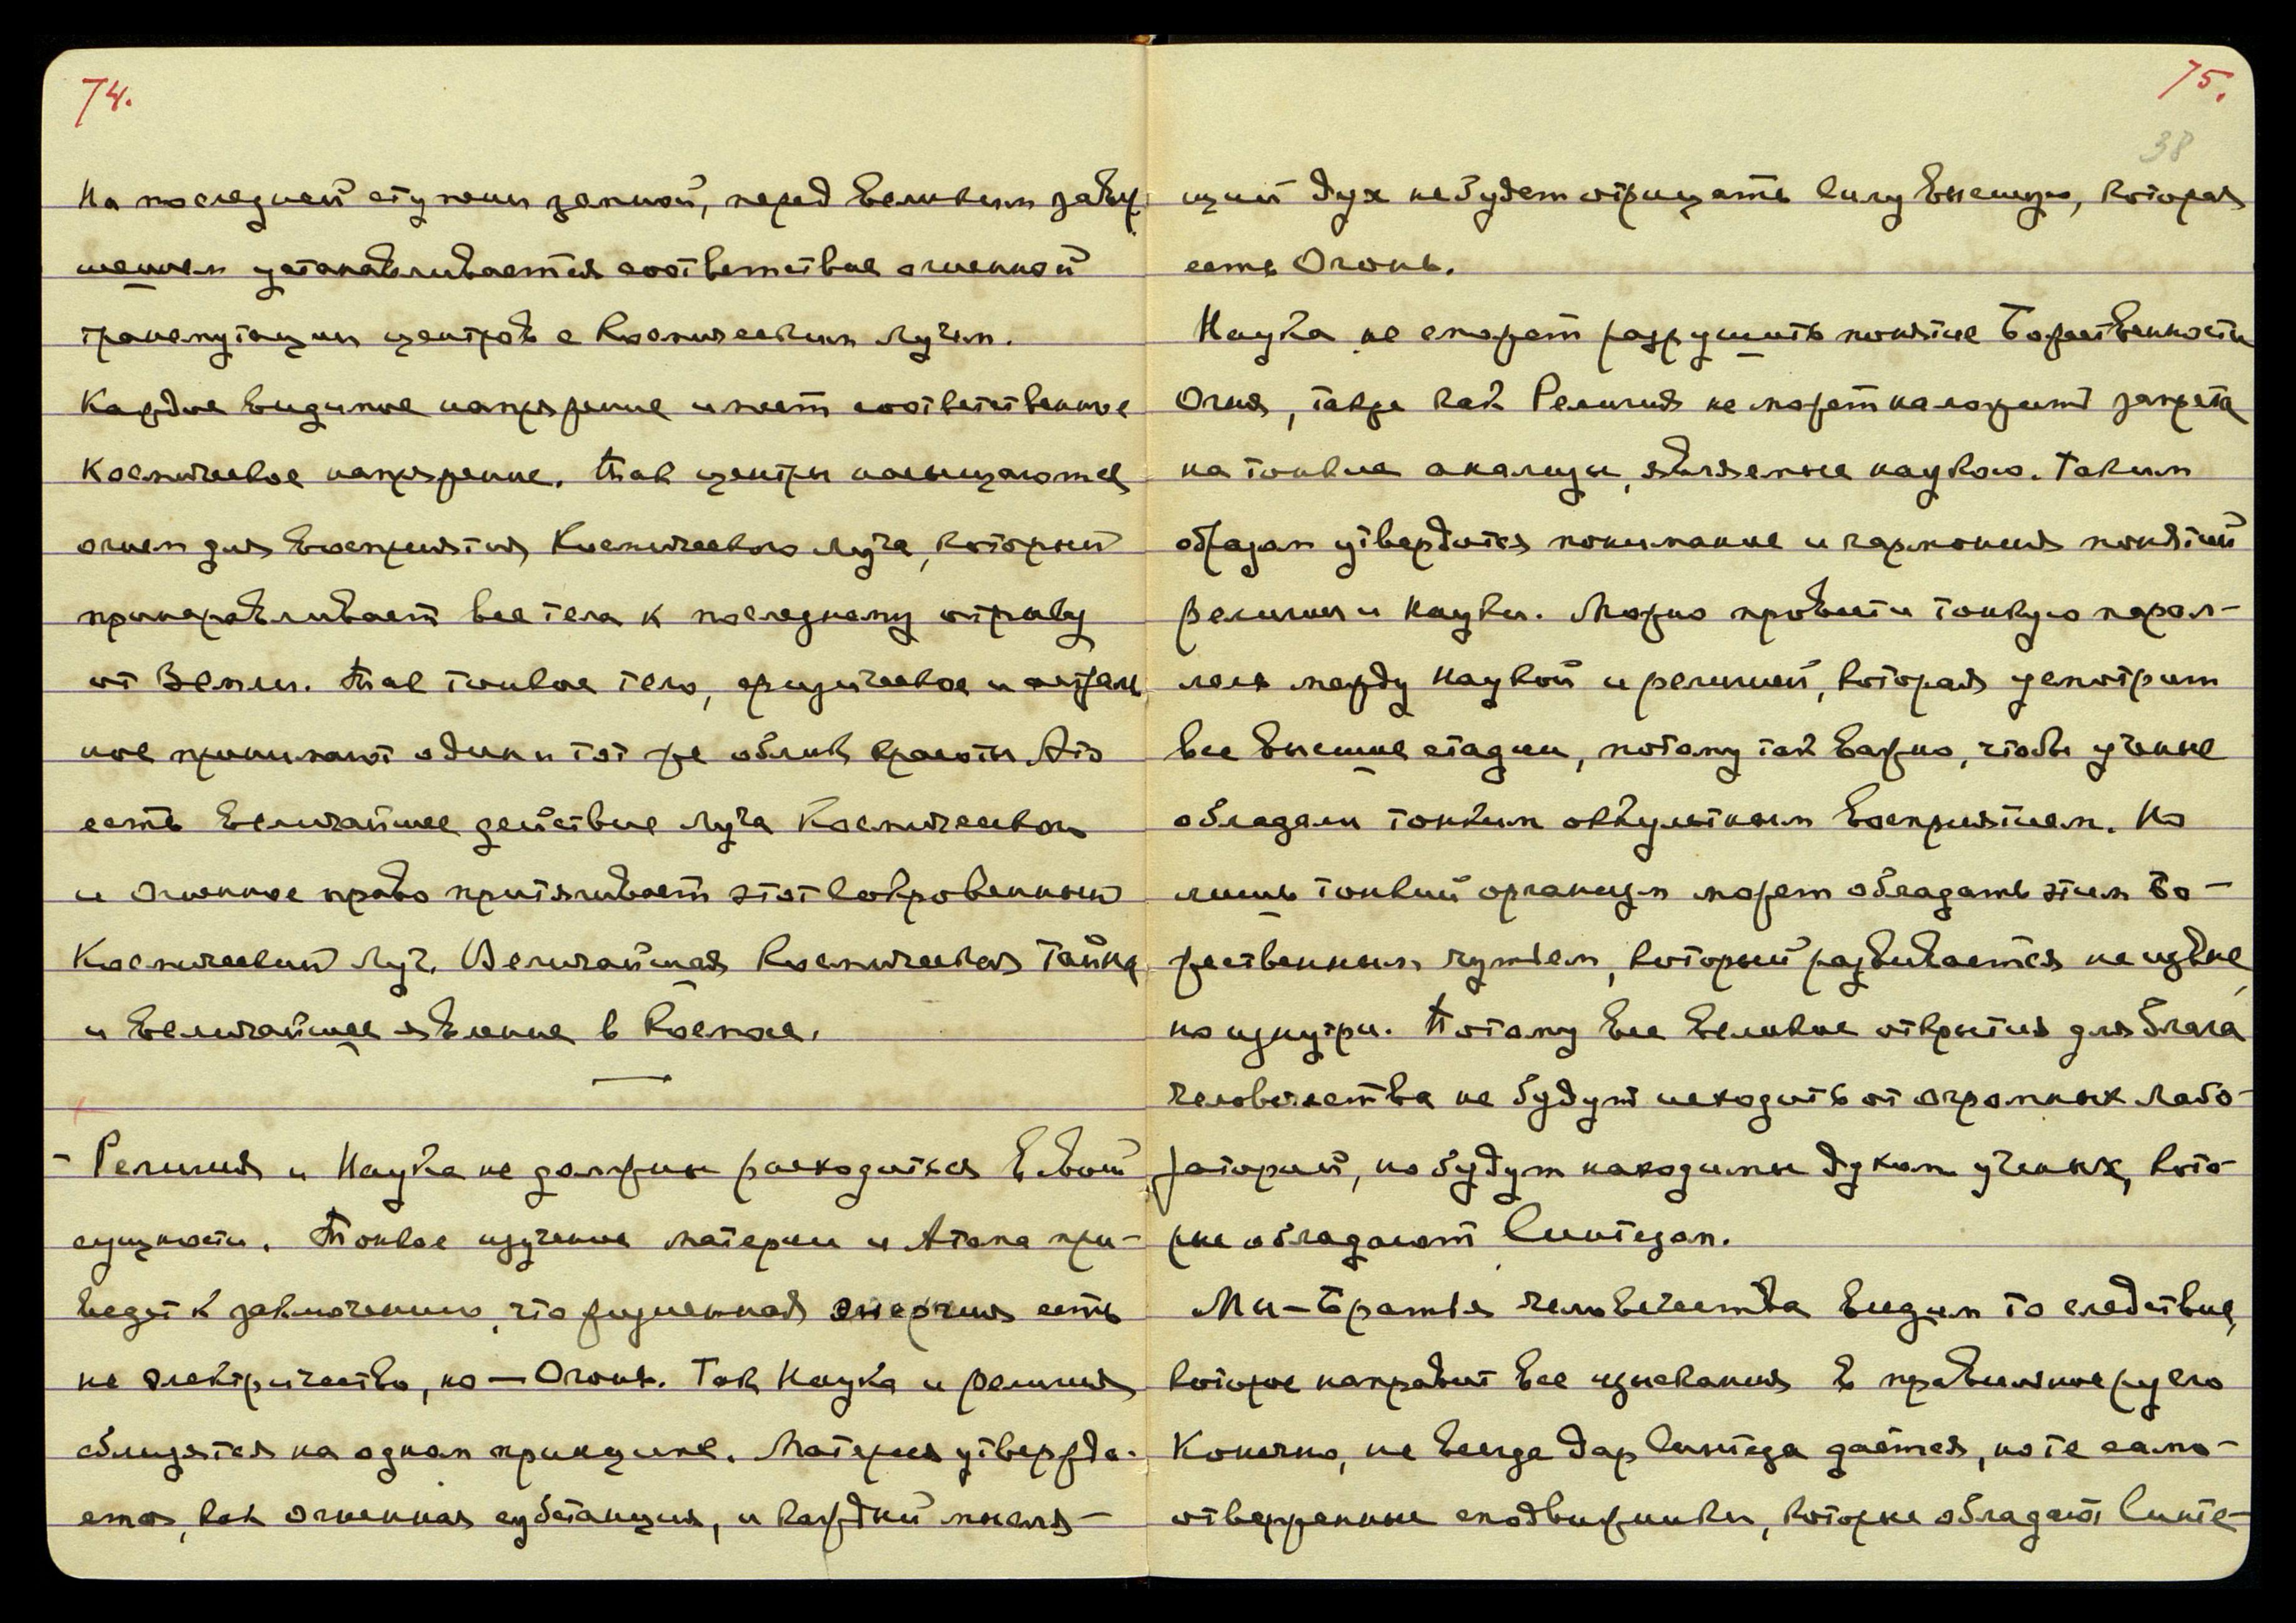 74.
На последней ступени земной, перед великим завер
шением устанавливается соответствие огненной
трансмутации центров с Космическим Лучем.
Каждое видимое напряжение имеет соответственное
Космическое напряжение. Так центры насыщаются
огнем для восприятия Космического луча, который
приноравливает все тела к последнему отрыву
от Земли. Так тонкое тело, физическое и астраль
ное принимают один и тот же облик красоты Это
есть величайшее действие луча Космического
и огненное право притягивает этот сокровенный
Космический луч. Величайшая Космическая Тайна
и величайшее явление в Космосе.
- Религия и Наука не должны расходиться в своей
сущности. Тонкое изучение материи и Атома при-
ведет к заключению, что жизненная энергия есть
не электричество, но — Огонь. Так Наука и религия
сблизятся на одном принципе. Материя утвержда-
ется, как огненная субстанция, и каждый мысля-
75.
38
щий дух не будет отрицать Силу Высшую, которая
есть Огонь.
Наука не сможет разрушить понятие Божественности
Огня, также как Религия не может наложить запрета
на тонкие анализы, являемые наукою. Таким
образом утвердится понимание и гармония понятий
религии и Науки. Можно провести тонкую парал-
лель между Наукой и религией, которая усмотрит
все высшие стадии, потому так важно, чтобы ученые
обладали тонким оккультным восприятием. Но
лишь тонкий организм может обладать этим Бо-
жественным чутьем, который развивается не извне,
но изнутри. Потому все великие открытия для блага
человечества не будут исходить от огромных лабо-
раторий, но будут находимы духом ученых, кото-
рые обладают Синтезом.
Мы — Братья человечества видим то следствие,
которое направит все изыскания в правильное русло
Конечно, не всегда дар Синтеза дается, но те само-
отверженные сподвижники, которые обладают Синте-